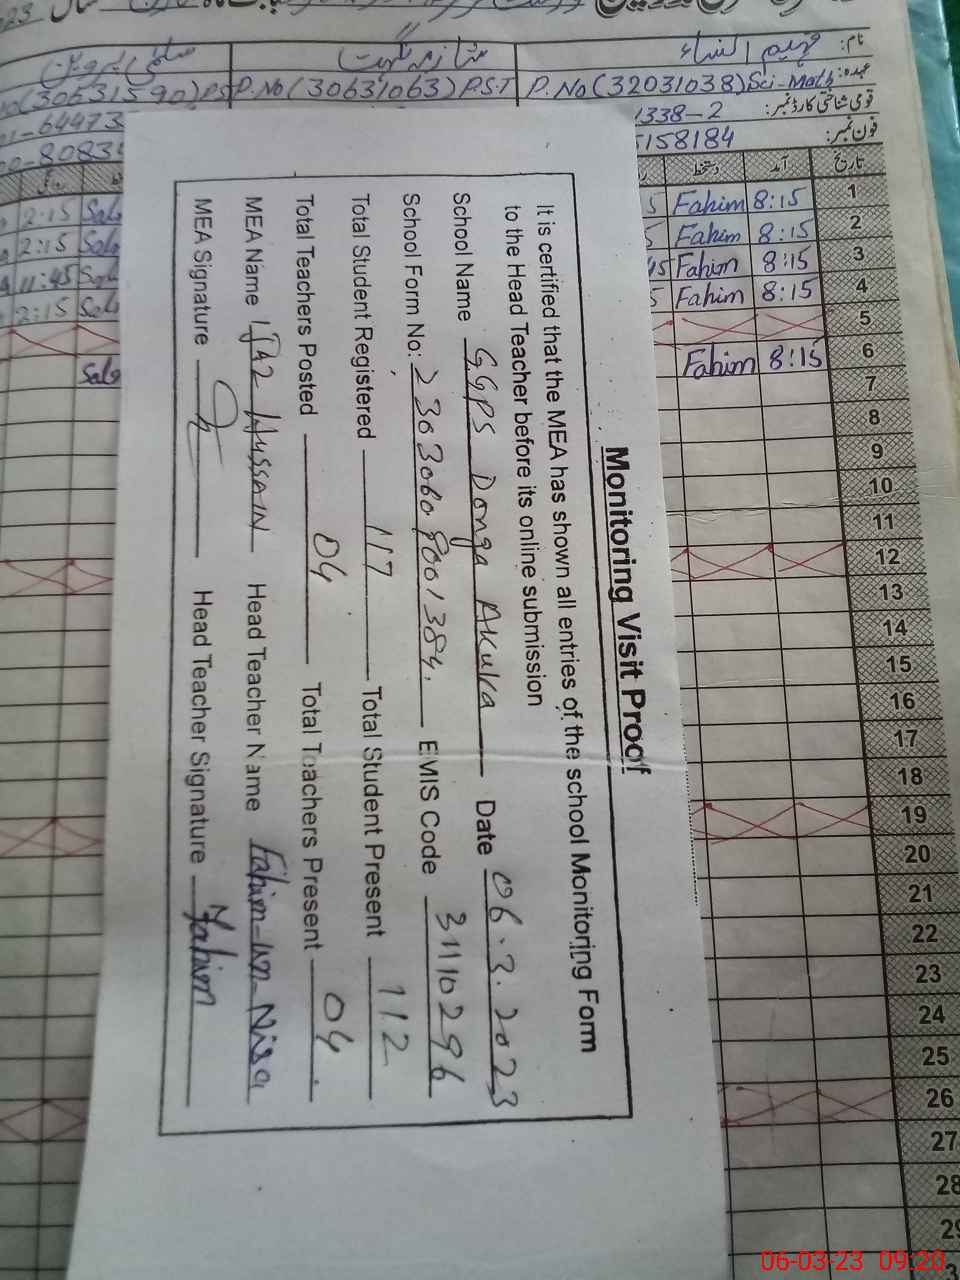 Monitoring Visit Proof
It is certified that the MEA has shown all entries of the school Monitoring Form
to the Head Teacher before its online submission
School Name GGPS Donga Akuka Date 06.3.2023
School Form No: 23030608001384. EMIS Code 31110296
Total Student Registered 117 Total Student Present 112
Total Teachers Posted 04 Total Teachers Present 04
MEA Name Hussain Head Teacher Name Fahim-un-Nisa
MEA Signature Head Teacher Signature Fahim
نام: فہیم النساء
عہدہ: P.No(32031038)Sci-Math P.No(30631063)P.S.T (30631590)PS
قومی شناختی کارڈ نمبر: 1338-2 6447
فون نمبر: 158184 8083
تاریخ آمد دستخط
1 8:15 Fahim 2:15
2 8:15 Fahim 2:15
3 8:15 Fahim 11:45
4 8:15 Fahim 2:15
5
6 8:15 Fahim
7
8
9
10
11
12
13
14
15
16
17
18
19
20
21
22
23
24
25
26
27
28
06-03-23 09:20